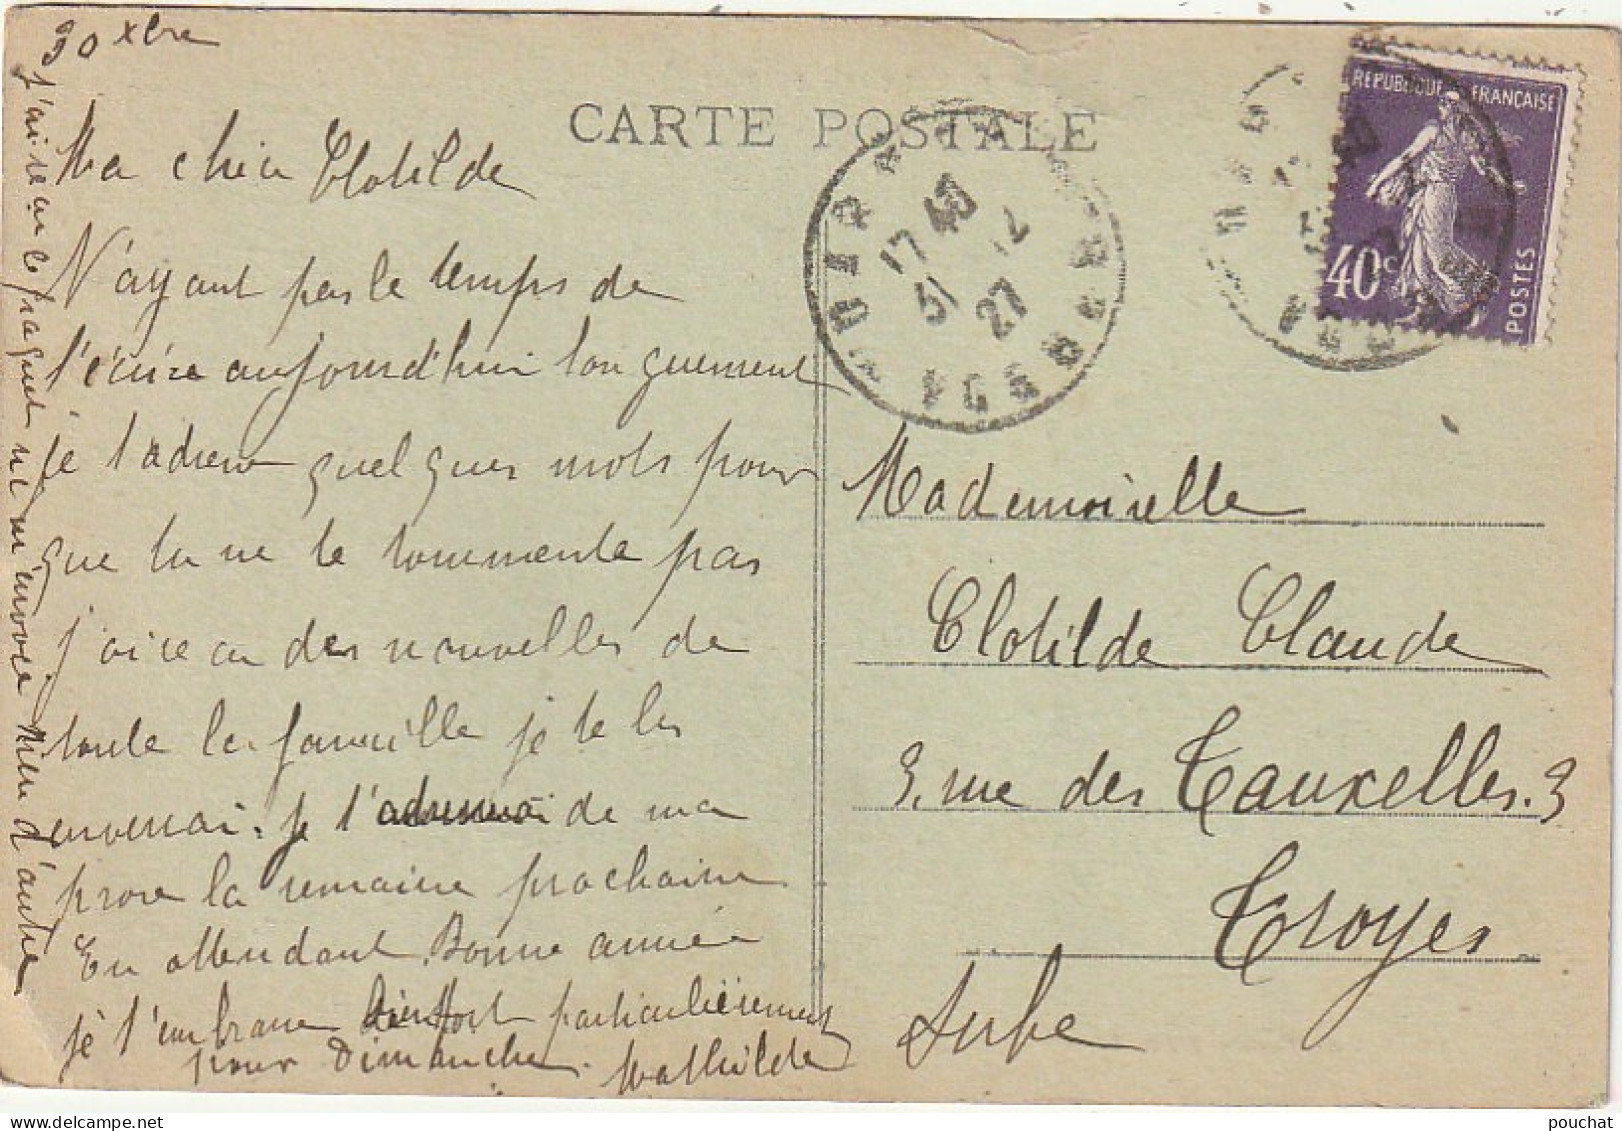 30 xbre
CARTE POSTALE
Ma chère Clotilde
N'ayant pas le temps de
t'écrire aujourd'hui longuement
je t'adresse quelques mots pour
que tu ne te tourmente pas
j'ai reçu des nouvelles de
toute la famille je te les
enverrai. je t'adresserai de ma
prose la semaine prochaine
En attendant Bonne année
je t'embrasse bien fort particulièrement
pour Dimanche. Mathilde
j'ai reçu le paquet ne m'envoie rien d'autre
17 40
31 12
27
REPUBLIQUE FRANÇAISE
40c
POSTES
Mademoiselle
Clotilde Claude
3, rue des Tauxelles. 3
Troyes
Aube
pouchat